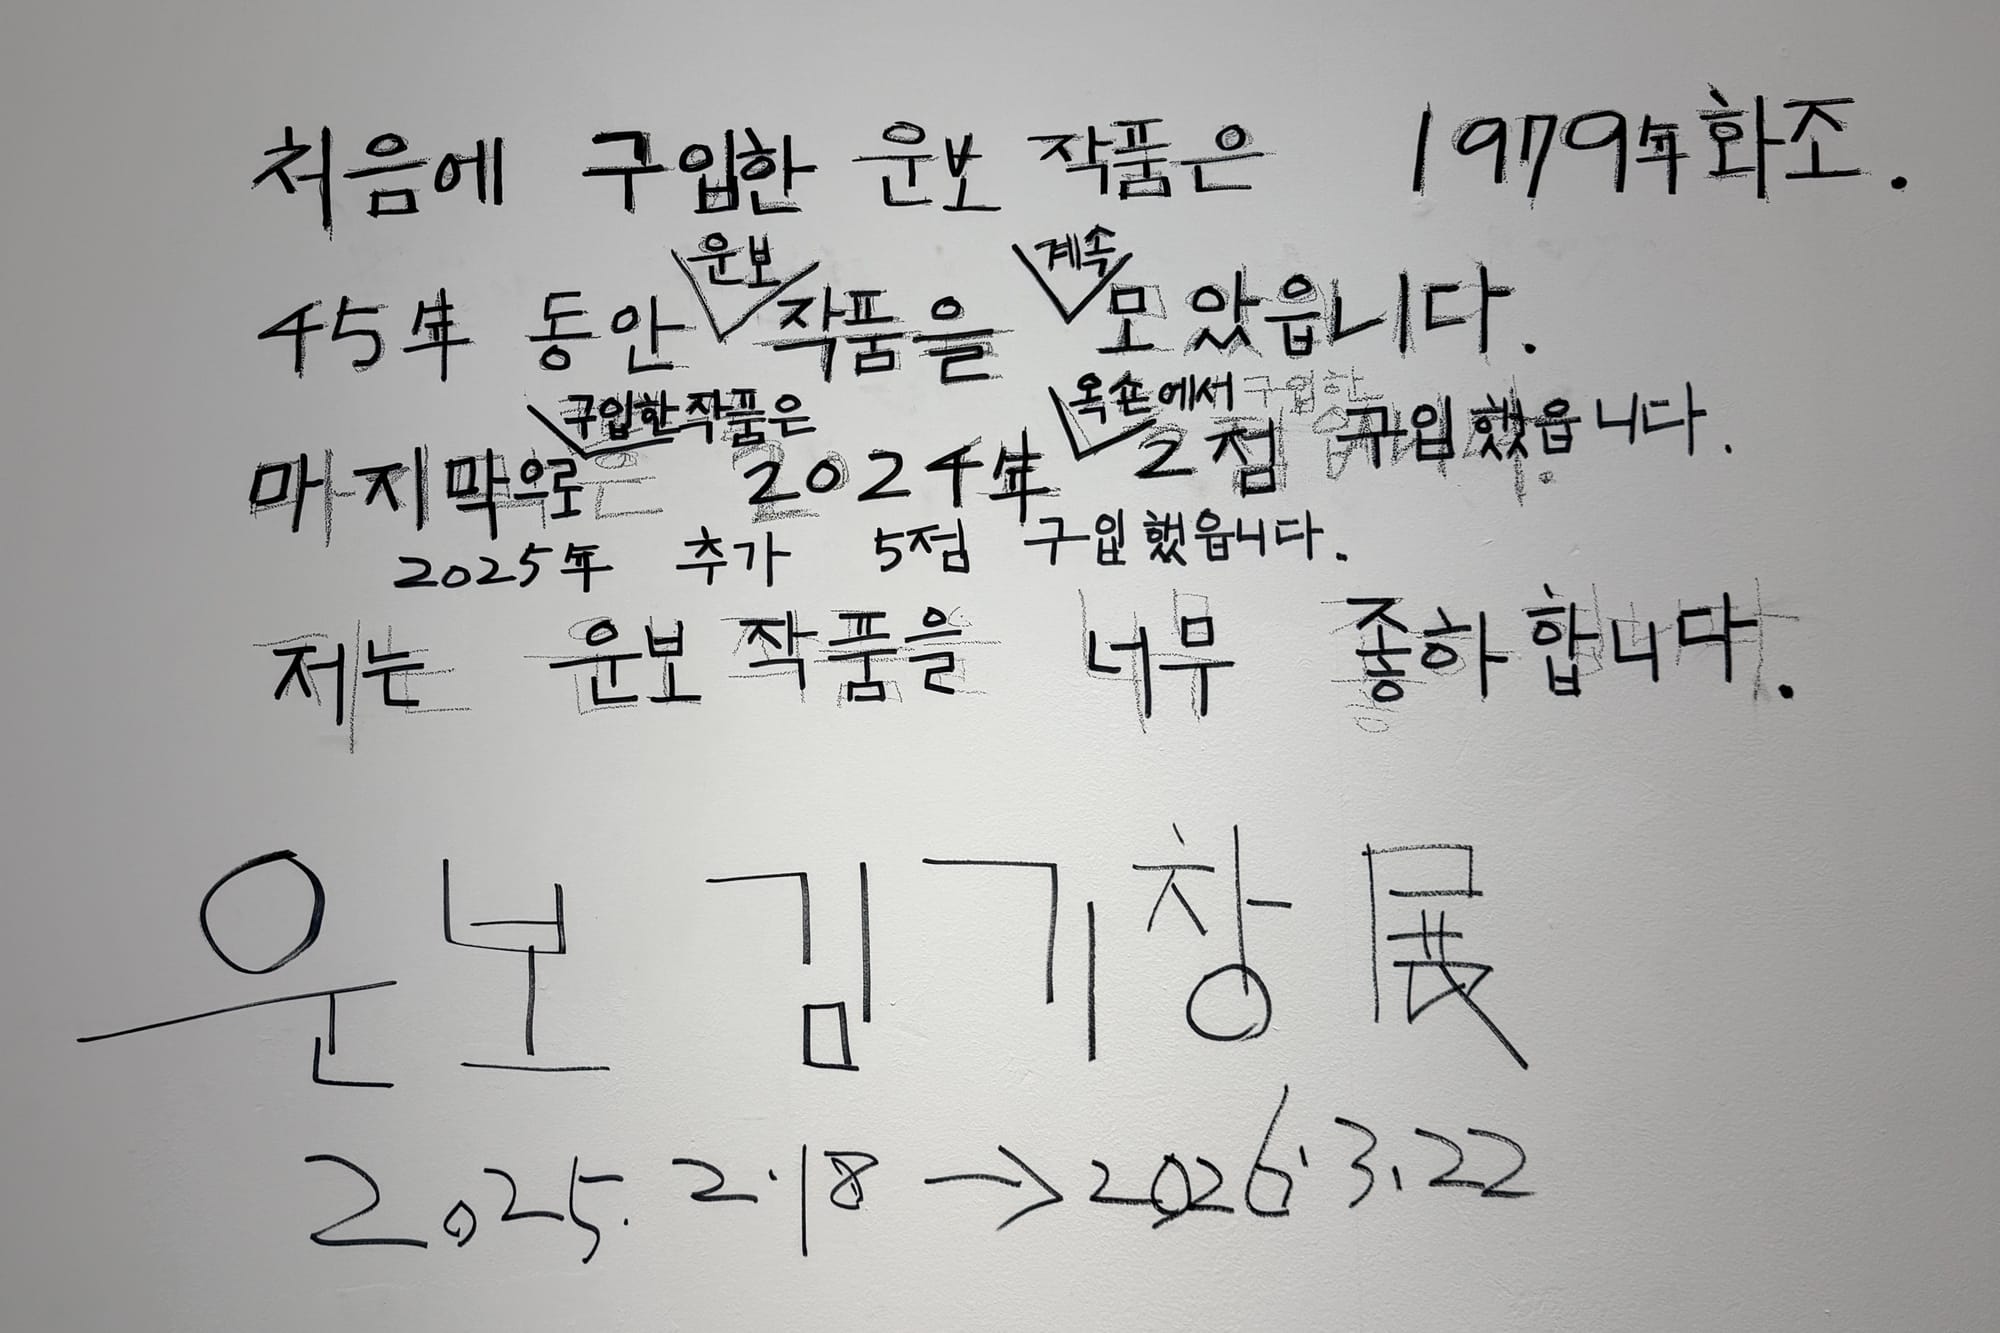 처음에 구입한 운보 작품은 1979年 화조.
45年 동안 운보 작품을 계속 모았읍니다.
마지막으로 구입한 작품은 2024年 옥션에서 2점 구입했읍니다.
2025年 추가 5점 구입했읍니다.
저는 운보 작품을 너무 좋하합니다.
운보 김기창 展
2025. 2.18 → 2026.3.22